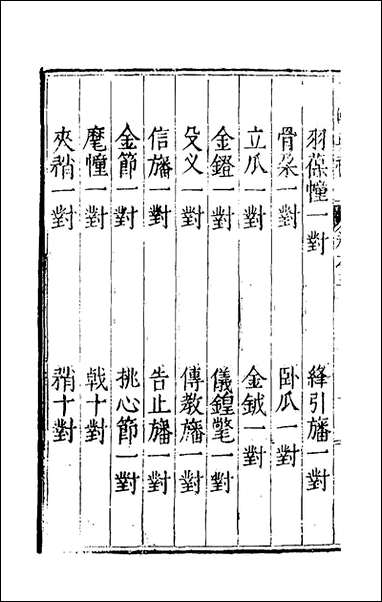 羽葆幢一對 絳引旛一對
骨朵一對 臥瓜一對
立瓜一對 金鉞一對
金鐙一對 儀鍠氅一對
殳义一對 傳教旛一對
信旛一對 告止旛一對
金節一對 挑心節一對
麾幢一對 戟十對
夾矟一對 矟十對